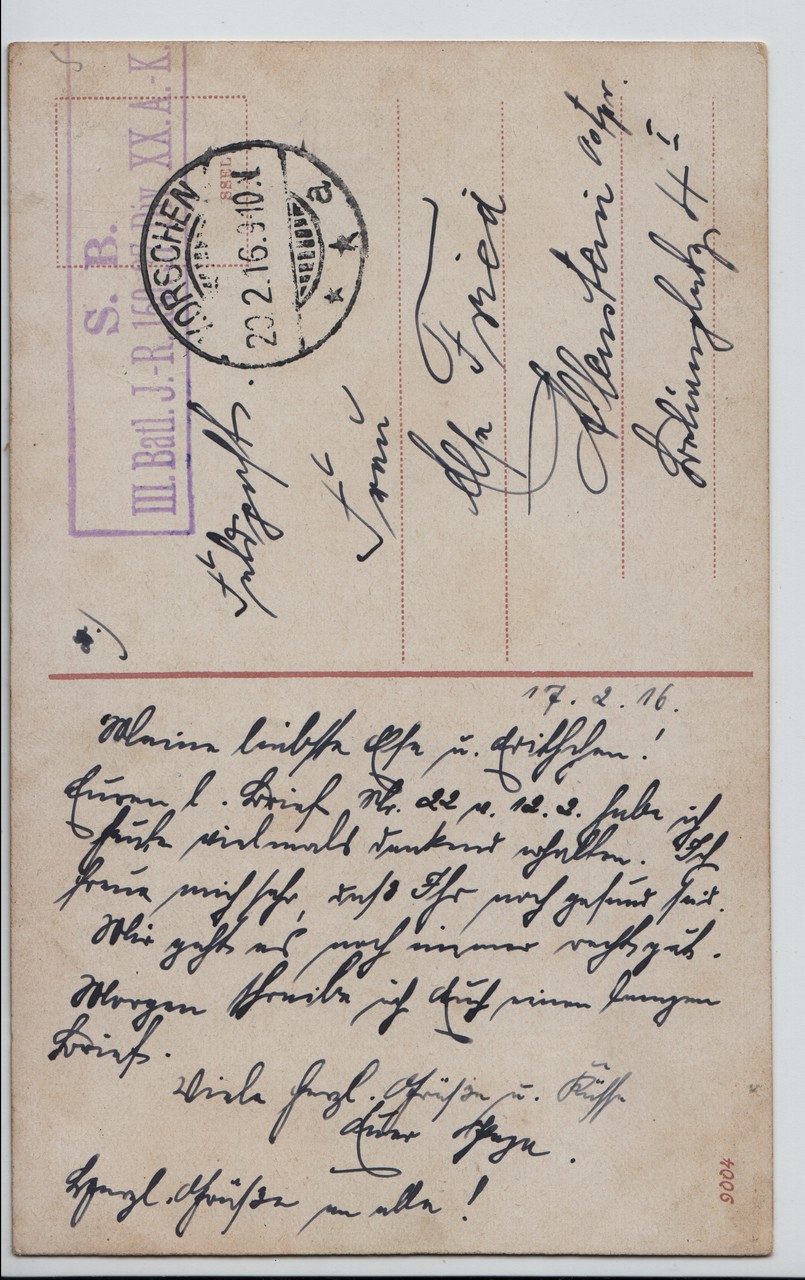 S. B.
III. Batl. J.-R. XX. A.-K.
KORSCHEN
20.2.16.9-10.V.
a
Feldpost.
Frau
Else Fried
Allenstein Ostpr.
4 I
17. 2. 16.
Meine liebste Else u. Edithchen!
Euren l. Brief Nr. 22 v. 12. 2. habe ich
heute vielmals dankend erhalten. Ich
freue mich sehr, daß Ihr noch gesund seid.
Mir geht es noch immer recht gut.
Morgen schreibe ich Euch einen langen
Brief.
Viele herzl. Grüße u. Küsse
Euer Papa.
Herzl. Grüße an alle!
9004